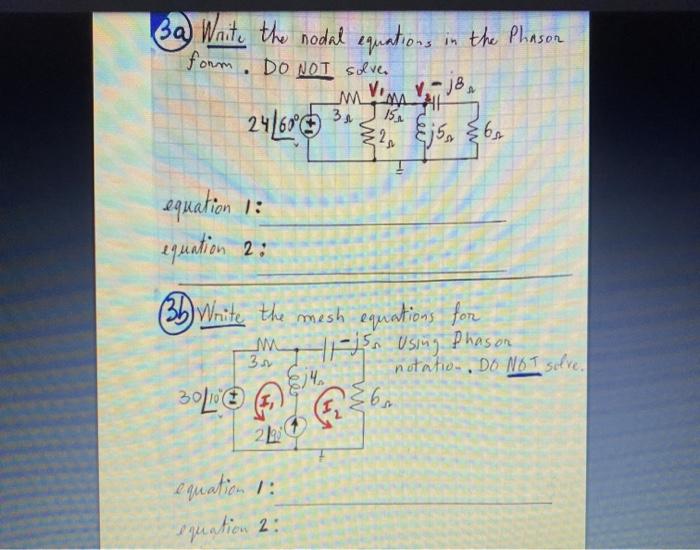 3a Write the nodal equations in the Phasor
form. DO NOT solve.
V1 V2 -j8Ω
3Ω 15Ω
24∠60° ± 2Ω j5Ω 6Ω
equation 1:
equation 2:
3b Write the mesh equations for
-j5Ω Using Phasor
3Ω notation. DO NOT solve.
j4Ω
30∠10° ± I1 I2 6Ω
equation 1:
equation 2: